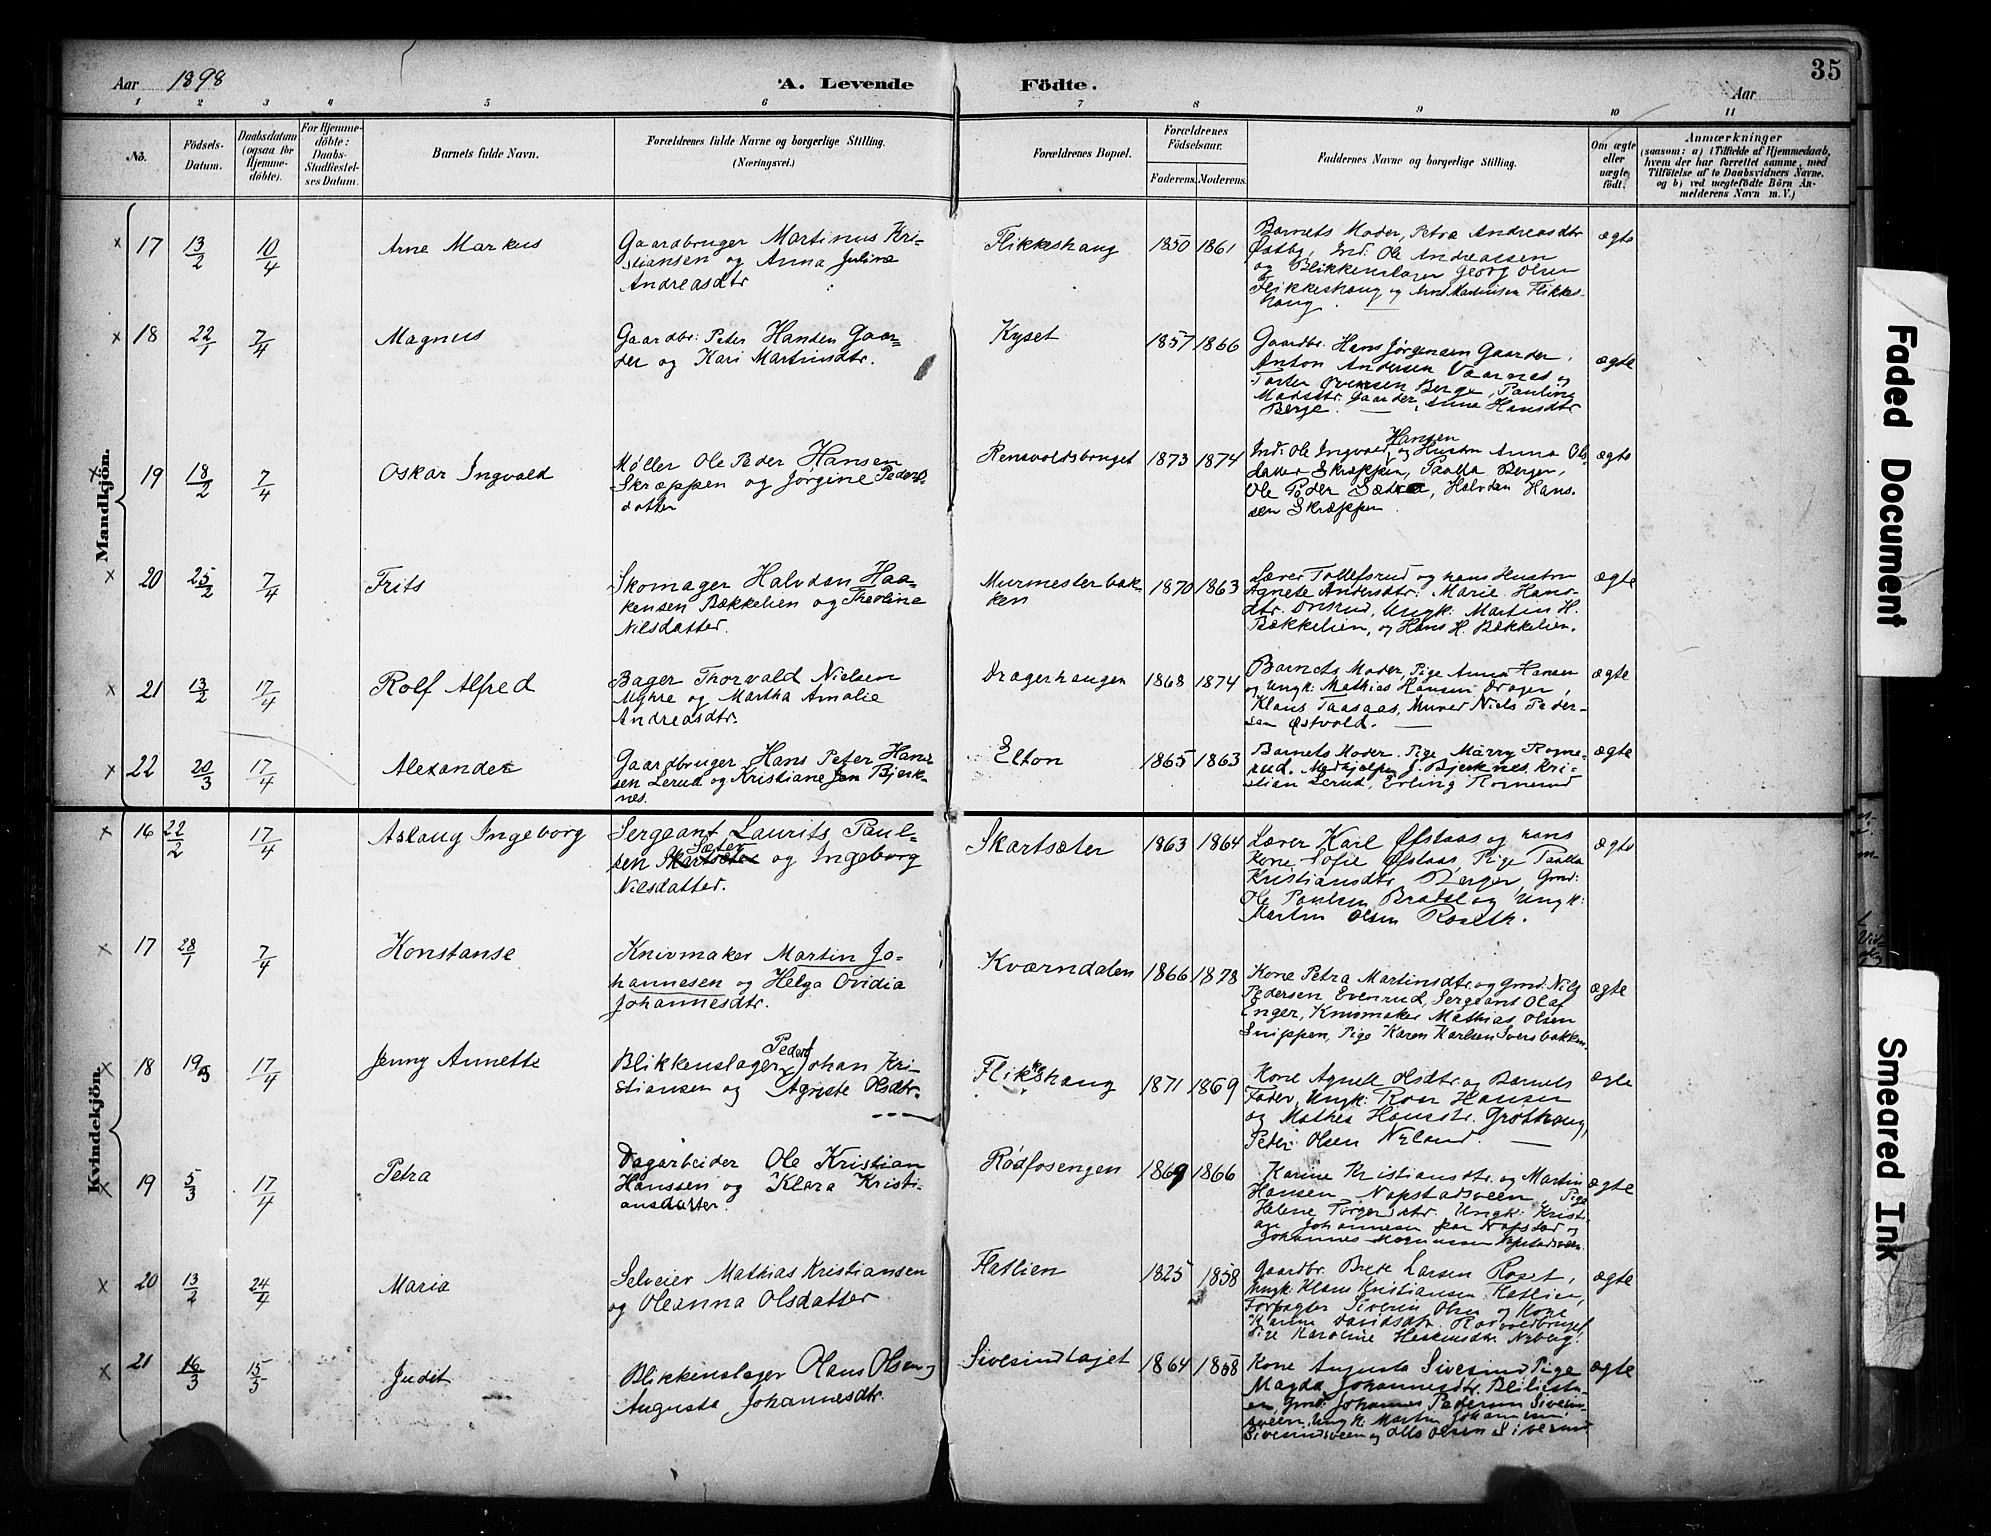 35
Aar 1898
A. Levende Födte.
Aar
1 2 3 4 5 6 7 8 9 10 11
No.
Födsels-
Datum.
Daabsdatum
(ogsaa for
Hjemme-
döbte).
For Hjemme-
döbte:
Daabs-
Stadfæstel-
ses Datum.
Barnets fulde Navn.
Forældrenes fulde Navne og borgerlige Stilling.
(Næringsvei.)
Forældrenes Bopæl.
Forældrenes
Födselsaar.
Faderens. Moderens.
Faddernes Navne og borgerlige Stilling.
Om ægte
eller
uægte
födt.
Anmærkninger
(saasom: a) i Tilfælde af Hjemmedaab,
hvem der har forrettet samme, med
Tilföielse af to Daabsvidners Navne.
og b) ved uægtefödte Börn An-
melderens Navn m. V.)
Mandkjön.
x 17 13/2 10/4 Arne Markus
Gaardbruger Martinus Kri-
stiansen og Anna Juline
Andreasdtr
Flikkeshaug 1850 1861
Barnets Moder, Petra Andreasdtr
Østby, Ind. Ole Andreassen
og Blikkenslager Georg Olsen
Flikkeshaug og Arne Martinsen Flikkes-
haug
ægte
x 18 22/1 7/4 Magnus
Gaardbr: Peter Hansen Gaar-
der og Kari Martinsdtr.
Kyset 1857 1866
Gaardbr. Hans Jørgensen Gaarder,
Anton Andersen Vaarnes og
Torter Evensen Berge, Pauline
Madsdtr. Gaarder, Anna Hansdtr
Berge.
ægte
x 19 18/2 7/4 Oskar Ingvald
Møller Ole Peder Hansen
Skræppen og Jørgine Peders-
datter
Rensvoldsbruget 1873 1874
Ind: Ole Ingvald Hansen og Hustru Anna Ols-
datter Skræppen, Paalla Berger,
Ole Peder Sætra, Halvdan Hans-
sen Skræppen.
ægte
x 20 25/2 7/4 Frits
Skomager Halvdan Haa-
kensen Bækkelien og Theoline
Nilsdatter.
Murmesterbak-
ken
1870 1863
Lærer Tollefsrud og hans Hustru
Agnete Andersdtr: Marie Hans-
dtr. Onsrud, Ungk: Martin H.
Bækkelien, og Hans H. Bækkelien.
ægte
x 21 13/2 17/4 Rolf Alfred
Bager Thorvald Nielsen
Myhre og Martha Amalie
Andreasdtr.
Dragerhaugen 1868 1874
Barnets Moder, Pige Anna Hansen
og Ungk: Mathias Hansen Drager,
Klaus Taasaas, Murer Niels Peder-
sen Østvold.
ægte
x 22 20/3 17/4 Alexander
Gaardbruger Hans Peter Han-
sen Lerud og Kristiane Bjerk-
nes.
Elton 1865 1863
Barnets Moder, Pige Marry Rogne-
rud. Medhjelper J. Bjerknes, Kri-
stian Lerud, Erling Rognerud
ægte
Kvindekjön.
x 16 22/2 17/4 Aslaug Ingeborg
Sergeant Laurits Paul-
sen Sæter og Ingeborg
Nilsdatter.
Skartsæter 1863 1864
Lærer Karl Øfstaas og hans
Kone Sofie Øfstaas, Pige Paalla
Kristiansdtr Berger, Gmd:
Ole Paulsen Bratsl og Ungk:
Martin Olsen Roseth.
ægte
x 17 28/1 7/4 Konstanse
Knivmaker Martin Jo-
hannesen og Helga Ovidia
Johannesdtr.
Kværndalen 1866 1878
Kone Petra Martinsdtr. og Gmd. Nils
Pedersen Evenrud, Sergeant Olaf
Enger, Knivmaker Mathias Olsen
Snippen, Pige Karen Karlsen Sversbakken.
ægte
x 18 19/3 17/4 Jenny Annette
Blikkenslager Peder Johan Kri-
stiansen og Agnete Olsdtr.
Flikkeshaug 1871 1869
Kone Agnete Olsdtr og Barnets
Fader, Ungk: Roar Hansen
og Mathea Hansdtr. Grøthaug,
Peder Olsen Nyland.
ægte
x 19 5/3 17/4 Petra
Dagarbeider Ole Kristian
Hanssen og Klara Kristi-
ansdatter.
Rødfosengen 1869 1866
Karine Kristiansdtr og Martin
Hansen Napstadsveen, Pige
Helene Torgersdtr. Ungk: Kristi-
an Johannesen paa Napstad og
Johannes Magnussen Napstadsveen.
ægte
x 20 13/2 24/4 Maria
Selveier Mathias Kristiansen
og Oleanna Olsdatter
Flatlien 1825 1858
Gaardbr. Brede Larsen Roset,
Ungk: Klaus Kristiansen Flatlien,
Forpagter Siverin Olsen og Kone
Karine Davidsdtr. Rosvoldbruget
Pige Karoline Nyberg.
ægte
x 21 16/3 15/5 Judit
Blikkenslager Olaus Olsen og
Augusta Johannesdtr.
Sivesindlajet 1864 1858
Kone Augusta Sivesind Pige
Magda Johannesdtr. Bliliestu-
en, Gmd: Johannes Pedersen Sivesin-
sveen, Ungk: Martin Johannesen
Sivesindsveen og Otto Olsen Sivesind
ægte
Faded Document
Smeared Ink